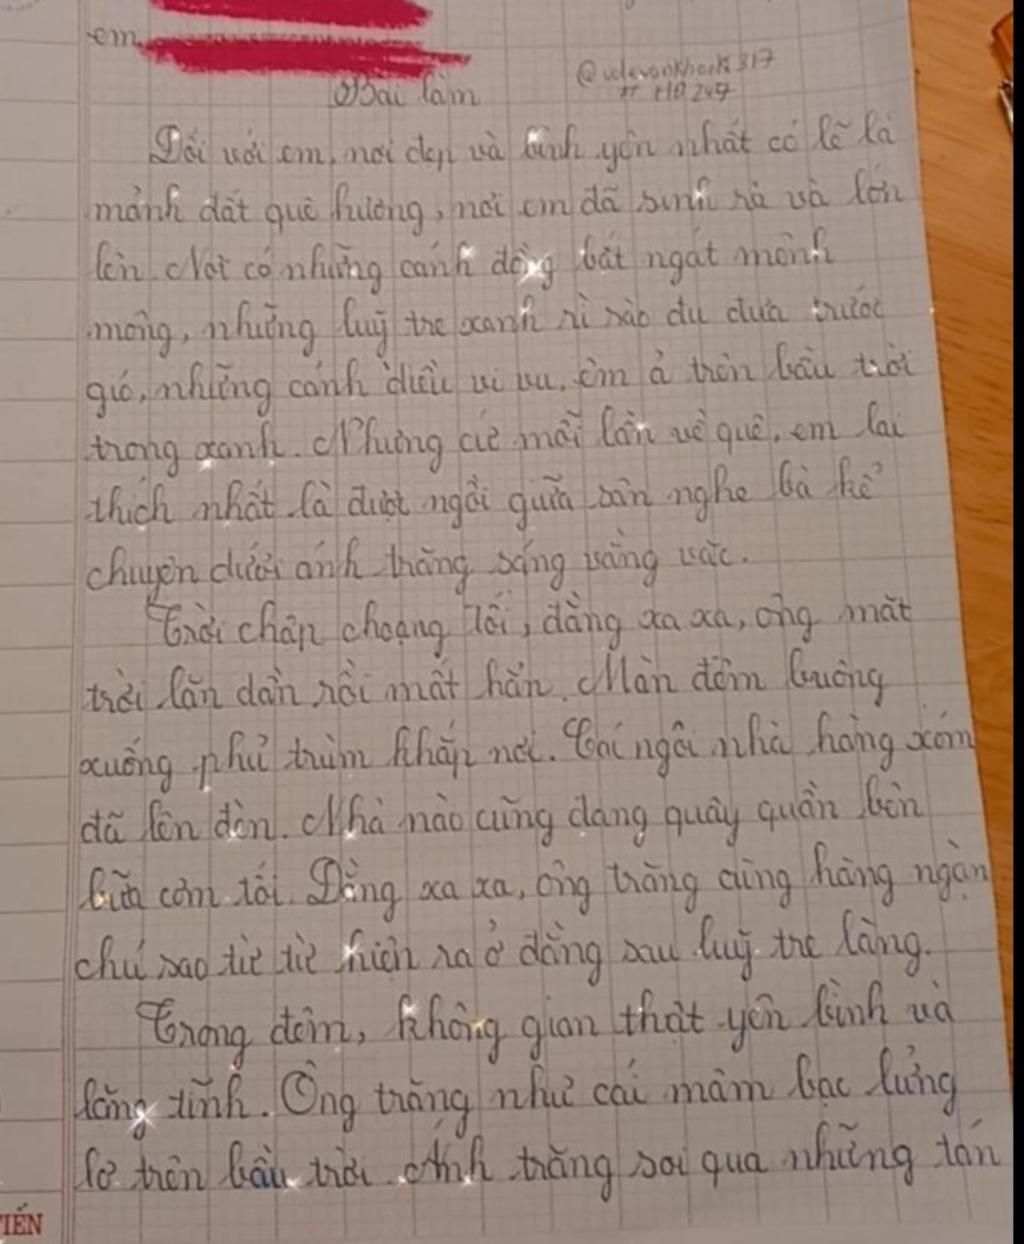 em
Bài làm
Đối với em, nơi đẹp và bình yên nhất có lẽ là
mảnh đất quê hương, nơi em đã sinh ra và lớn
lên. Nơi có những cánh đồng bát ngát mênh
mông, những luỹ tre xanh rì rào đu đưa trước
gió, những cánh diều vi vu, êm ả trên bầu trời
trong xanh. Nhưng cứ mỗi lần về quê, em lại
thích nhất là được ngồi giữa sân nghe bà kể
chuyện dưới ánh trăng sáng vằng vặc.
Trời chập choạng tối, đằng xa xa, ông mặt
trời lặn dần rồi mất hẳn. Màn đêm buông
xuống phủ trùm khắp nơi. Cái ngôi nhà hàng xóm
đã lên đèn. Nhà nào cũng đang quây quần bên
bữa cơm tối. Đằng xa xa, ông trăng cùng hàng ngàn
chú sao từ từ hiện ra ở đằng sau luỹ tre làng.
Trong đêm, không gian thật yên bình và
lặng tĩnh. Ông trăng như cái mâm bạc lửng
lơ trên bầu trời. Ánh trăng soi qua những tán